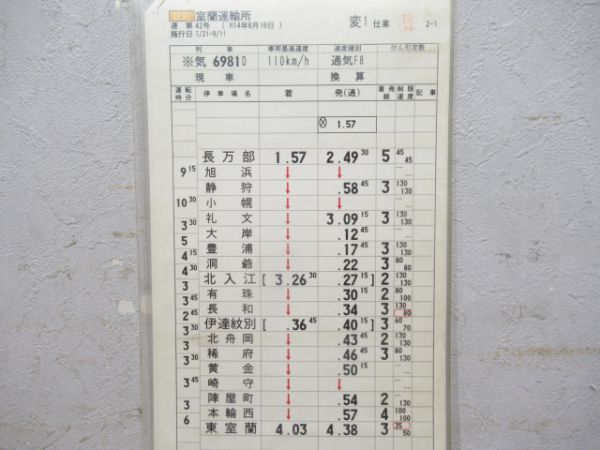 室蘭運輸所
達 第 42号 ( H14年6月18日 ) 変1 仕業 2-1
施行日 7/21-9/11
列車 車両最高速度 速度種別 けん引定数
※気 6981D 110km/h 通気F8
現車 換算
運転時分 停車場名 着 発(通) 着発線 制限速度 記事
⊗ 1.57
長万部 1.57 2.49 30 5 45 45
9 15 旭浜 ↓ ↓ … …
静狩 ↓ .58 45 3 130 130
10 30 小幌 ↓ ↓ … …
礼文 ↓ 3.09 15 3 130 130
3 30 大岸 ↓ .12 45
5 豊浦 ↓ .17 45 3 130 130
4 15 洞爺 ↓ .22 3 80 80
4 30 北入江 [ 3.26 30 .27 15 ] 2 130 130
3 有珠 ↓ .30 15 2 80 100
3 45 長和 ↓ .34 3 130 80
2 45 伊達紋別 [ .36 45 .40 15 ] 3 60 70
3 30 北舟岡 ↓ .43 45 2 … 130
3 稀府 ↓ .46 45 3 80 130
3 30 黄金 ↓ .50 15 … …
3 45 崎守 ↓ ↓ … …
陣屋町 ↓ .54 2 … 130
3 本輪西 ↓ .57 4 100 100
6 東室蘭 4.03 4.38 3 35 50